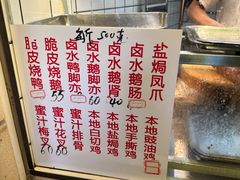 每斤 500克
脆皮烧鸭
脆皮烧鹅
55
卤水鸭亦
卤水鹅亦
60
卤水鹅肾
40
卤水鹅肠
盐焗凤爪
蜜汁梅叉
60
蜜汁花叉
60
蜜汁排骨
本地白切鸡
本地盐焗鸡
本地手撕鸡
本地豉油鸡